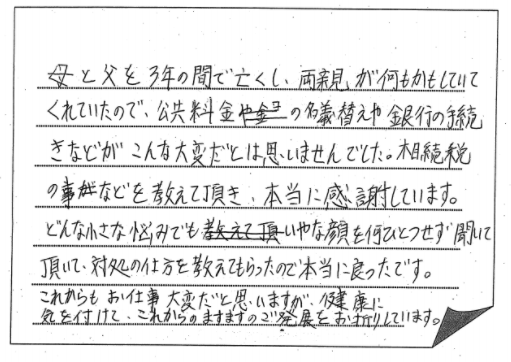 母と父を3年の間で亡くし、両親が何もかもしていて
くれていたので、公共料金の名義替えや銀行の手続
きなどがこんな大変だとは思いませんでした。相続税
の事などを教えて頂き、本当に感謝しています。
どんな小さな悩みでもいやな顔を何ひとつせず聞いて
頂いて、対処の仕方を教えてもらったので本当に良ったです。
これからもお仕事大変だと思いますが、健康に
気を付けて、これからのますますのご発展をお祈りしています。